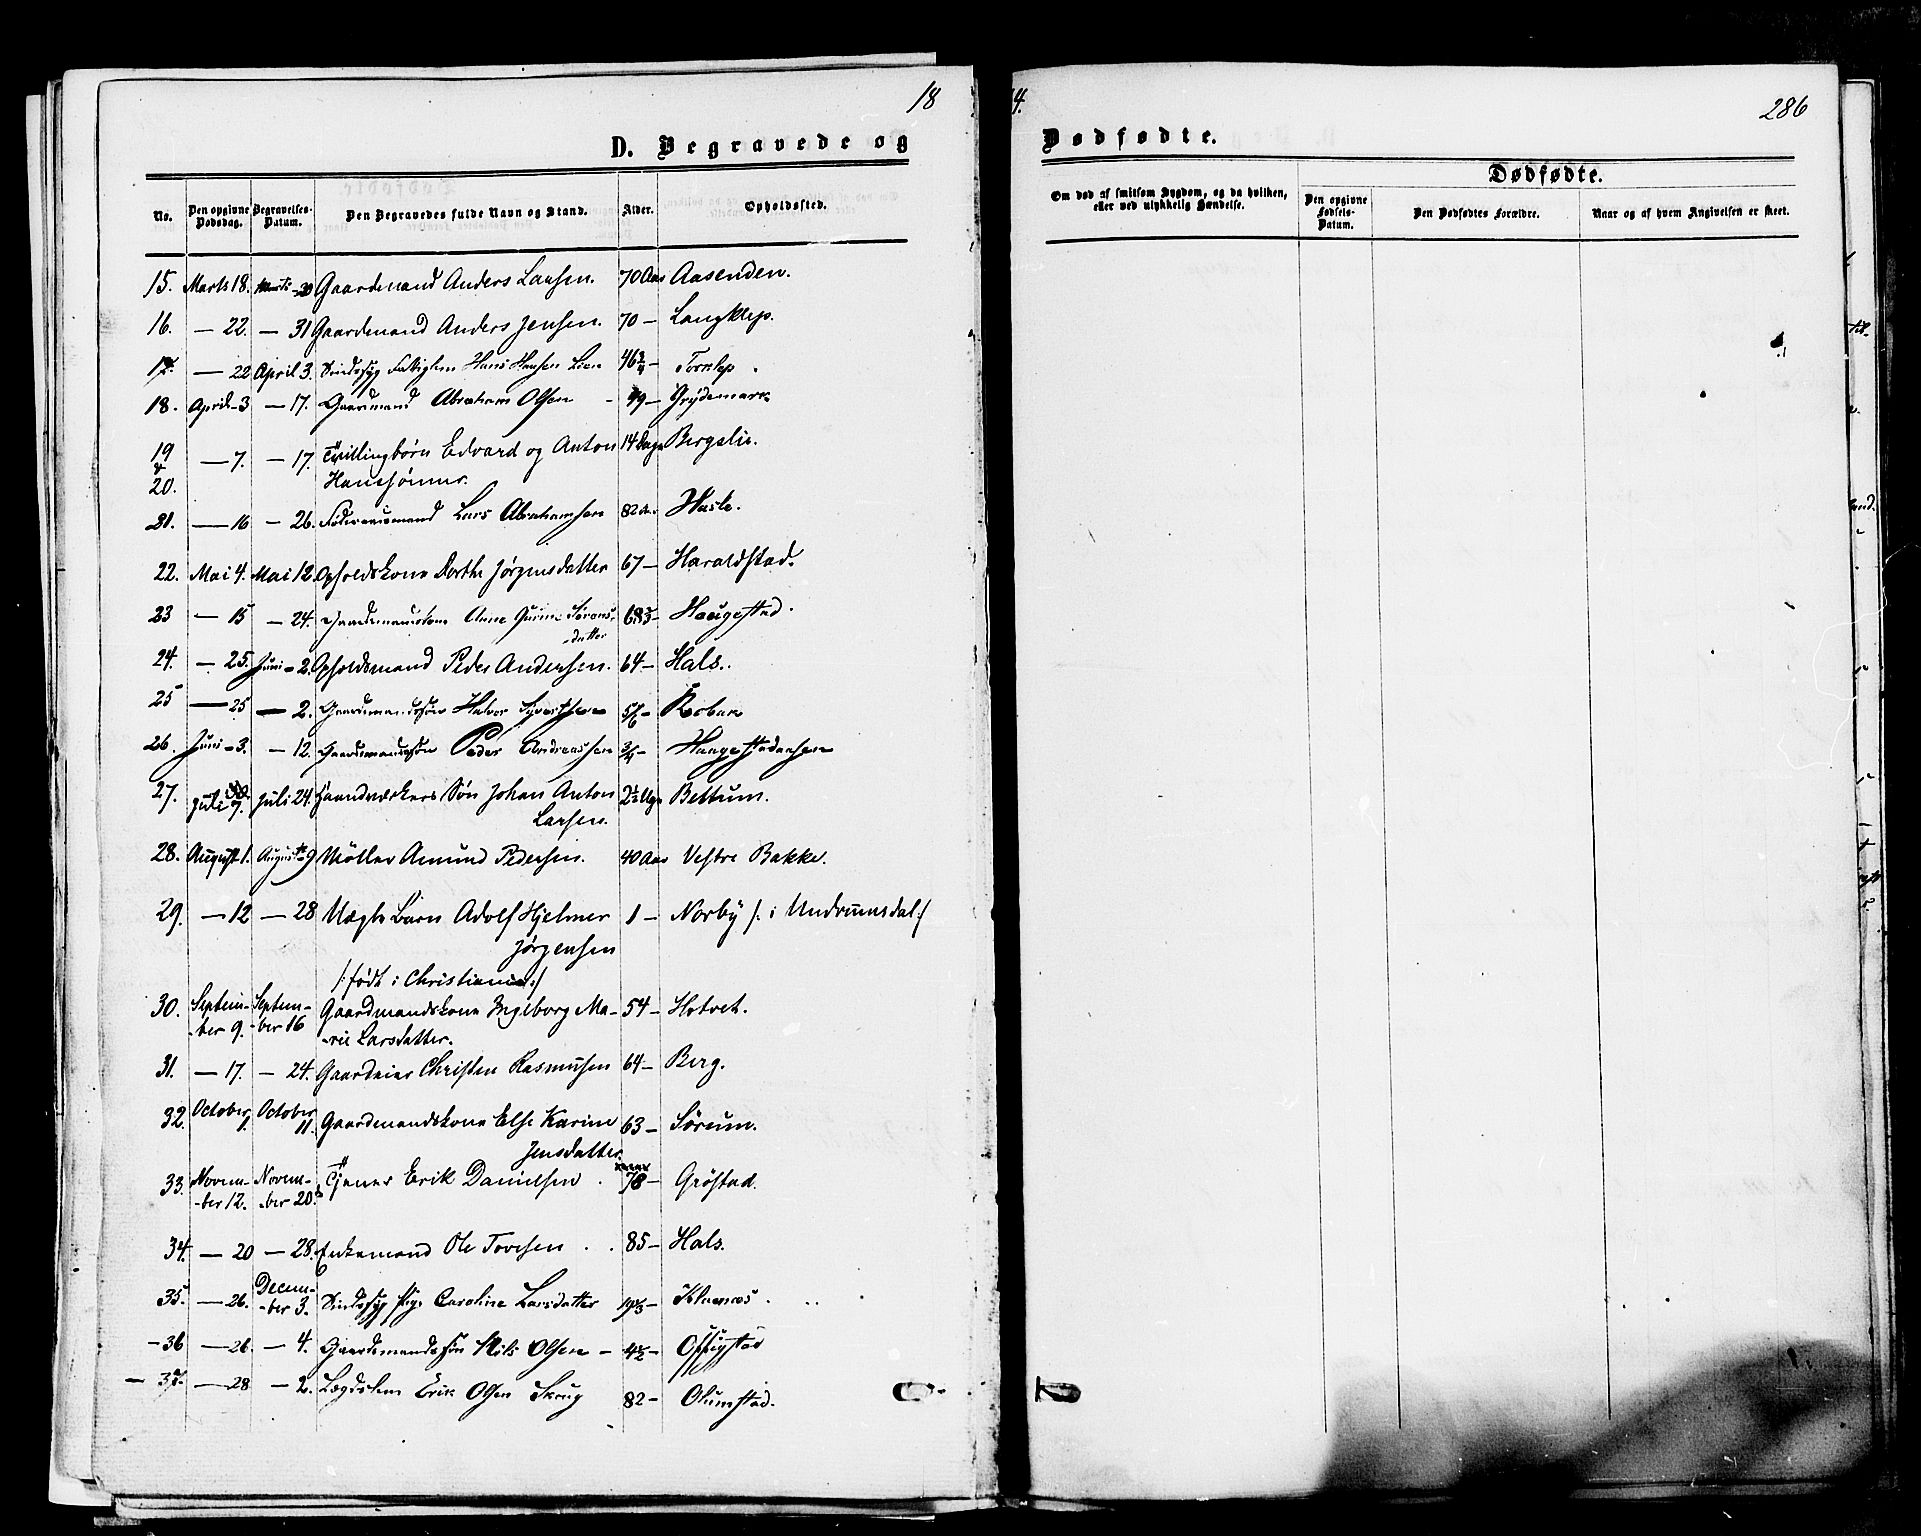 18
4.
286
D. Begravede og
Dødfødte.
No.
Den opgivne Dødsdag.
Begravelses-Datum.
Den Begravedes fulde Navn og Stand.
Alder.
Opholdssted.
Om død af smitsom Sygdom, og da hvilken, eller ved ulykkelig Hændelse.
Dødfødte.
Den opgivne Fødsels-Datum.
Den Dødfødtes Forældre.
Naar og af hvem Angivelsen er skeet.
15. Marts 18. Marts 30 Gaardmand Anders Larsen. 70 Aar Aasenden.
16. — 22. — 31 Gaardmand Anders Jensen. 70 — Langklep.
17. — 22 April 3. Sindssyg Fattiglem Hans Hansen Lien 46 3/4 — Torklep.
18. April 3 — 17. Gaardmand Abraham Olsen — 49 — Grydemark
19 & 20. — 7. — 17. Tvillingbørn Edvard og Anton 14 Dage Bergslie.
Hanssønner.
21. — 16 — 26. Føderaadsmand Lars Abrahamsen 82 A. Hasle.
22. Mai 4. Mai 12. Opholdskone Dorthe Jørgensdatter 67 — Haraldstad.
23 — 15 — 24. Gaardmandskone Anne Gurine Sørens- Haugestad.
-datter
24. — 25. Juni — 2. Opholdsmand Peder Andersen. 64 — Hals.
25 — 25 — 2. Gaardmandssøn Halvor Syvertsen 5/6 — Robak
26. Juni — 3. — 12. Gaardmandssøn Peder Andreassen 3/4 — Haugestadaasen
27. Juli 7. Juli 24. Haandverkers Søn Johan Anton 2 1/2 Uge Bettum.
Larsen.
28. August 1. August 9 Møller Amund Pedersen. 40 Aar Vestre Bakke.
29. — 12 — 28 Uægte Barn Adolf Hjelmer 1 — Norby /: i Undrumsdal:/
Jørgensen
/: født i Christiania:/
30. Septem- Septem- Gaardmandskone Ingeborg Ma- 54 — Hotvet.
-ber 9. -ber 16 -rie Larsdatter.
31. — 17. — 24. Gaardeier Christen Rasmussen 64 — Berg.
32. October 1. October 11. Gaardmandskone Else Karine 63 — Sørum.
Jensdatter
33. Novem- Novem- Tjener Erik Danielsen . 78 — Gröstad.
-ber 12. -ber 20.
34. — 20 — 28. Enkemand Ole Tovesen . . 85 — Hals.
35. — 26. Decem- Sindssyg Pige Caroline Larsdatter
-ber 3.
-36 — 26. — 4. Gaardmandssøn Nils Olsen — 4 1/2 —
— 37. — 28 — 2. Lægdslem Erik Olsen Skrug 82 — Olumstad.